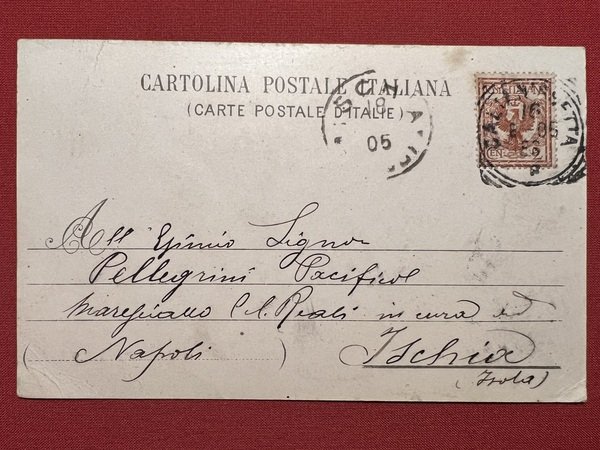 CARTOLINA POSTALE ITALIANA
(CARTE POSTALE D'ITALIE)
18
05
16
05
All Esimio Signor
Pellegrini Pacifico
Maresciallo C.C. Reali in cura ad
(Napoli) Ischia
(Isola)